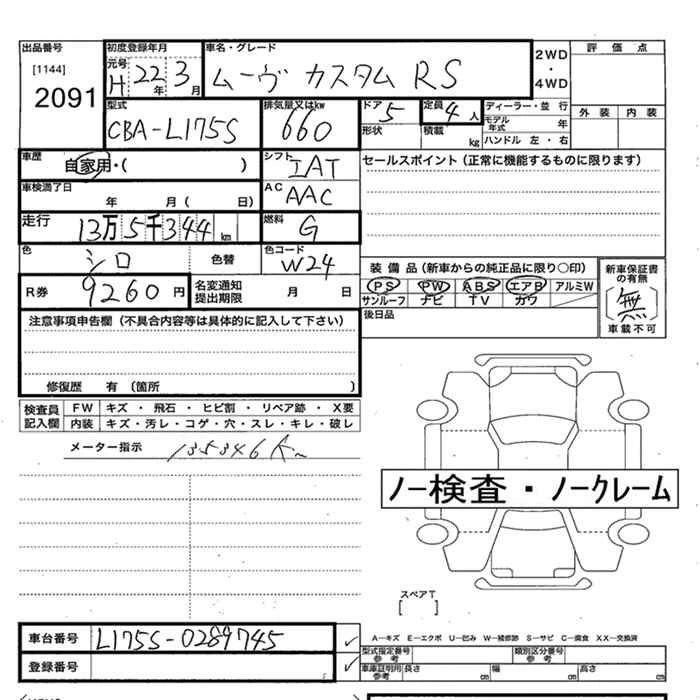 出品番号
[1144]
2091
初度登録年月
元号
H 22年 3月
車名・グレード
ムーヴ カスタム RS
2WD
・
4WD
評価点
外装 内装
型式
CBA-L175S
排気量又はkw
660
ドア 5
形状
定員 4人
積載 kg
ディーラー・並行
モデル年式 年
ハンドル 左・右
車歴
自家用・( )
シフト IAT
セールスポイント(正常に機能するものに限ります)
車検満了日
年 月( 日)
AC AAC
走行
13万5千344km
燃料 G
色 シロ 色替
色コード W24
R券 9260円
名変通知
提出期限
月 日
装備品(新車からの純正品に限り○印)
PS PW ABS エアB アルミW
サンルーフ ナビ TV カワ
後日品
新車保証書
の有無
[無]
車載不可
注意事項申告欄(不具合内容等は具体的に記入して下さい)
修復歴 有(箇所 )
検査員
記入欄
FW キズ・飛石・ヒビ割・リペア跡・X要
内装 キズ・汚レ・コゲ・穴・スレ・キレ・破レ
メーター指示 135346K
ノー検査・ノークレーム
スペアT
[ ]
車台番号 L175S-0289745
登録番号
A―キズ E―エクボ U―凹み W―補修跡 S―サビ C―腐食 XX―交換済
型式指定番号
参考
類別区分番号
参考
車庫証明用
参考
長さ cm 幅 cm 高さ cm